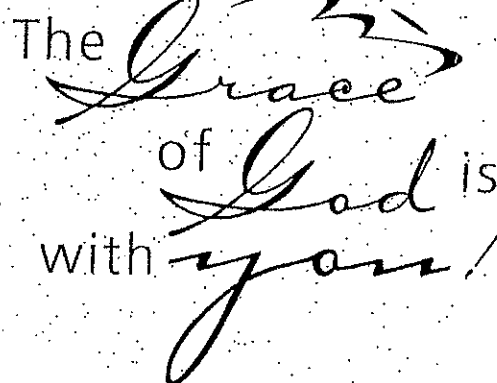 The Grace
of God is
with you!